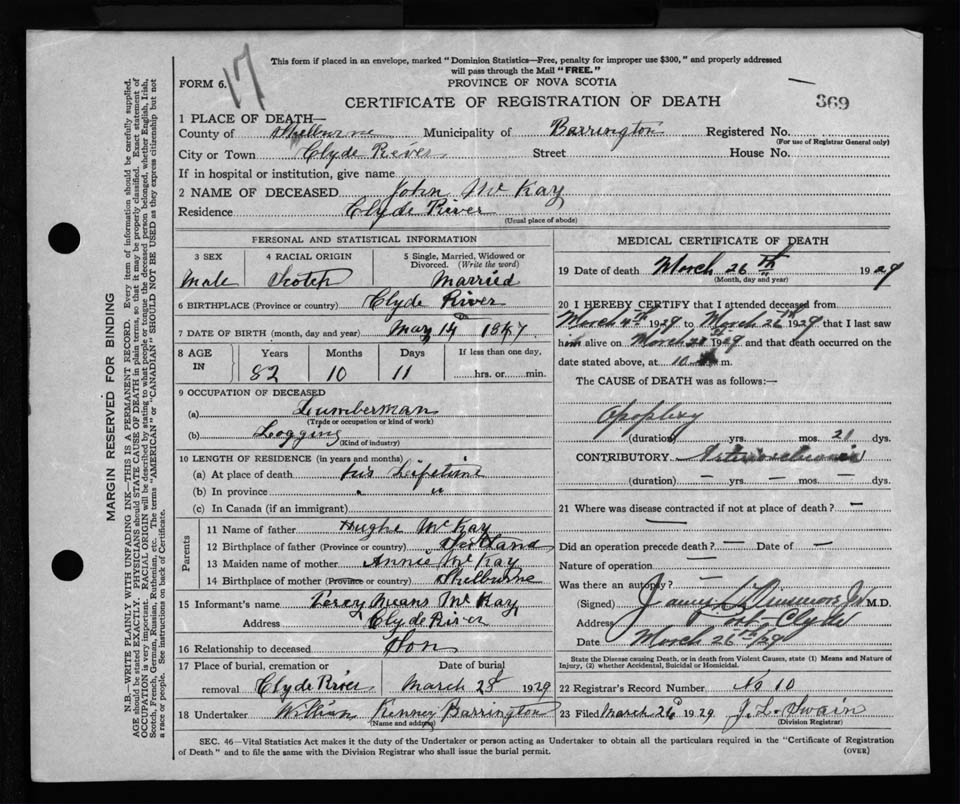 This form if placed in an envelope, marked "Dominion Statistics—Free, penalty for improper use $300," and properly addressed
will pass through the Mail "FREE."
17
FORM 6.
PROVINCE OF NOVA SCOTIA
CERTIFICATE OF REGISTRATION OF DEATH
369
1 PLACE OF DEATH—
County of Shelburne Municipality of Barrington Registered No.
(For use of Registrar General only)
City or Town Clyde River Street House No.
If in hospital or institution, give name
2 NAME OF DECEASED John McKay
Residence Clyde River
(Usual place of abode)
PERSONAL AND STATISTICAL INFORMATION
3 SEX 4 RACIAL ORIGIN 5 Single, Married, Widowed or Divorced. (Write the word)
Male Scotch Married
6 BIRTHPLACE (Province or country) Clyde River
7 DATE OF BIRTH (month, day and year) May 14 1847
8 AGE IN Years Months Days If less than one day,
82 10 11 hrs. or min.
9 OCCUPATION OF DECEASED
(a) Lumberman
(Trade or occupation or kind of work)
(b) Logging
(Kind of industry)
10 LENGTH OF RESIDENCE (in years and months)
(a) At place of death his Lifetime
(b) In province " "
(c) In Canada (if an immigrant)
Parents
11 Name of father Hughe McKay
12 Birthplace of father (Province or country) Scotland
13 Maiden name of mother Annie McKay
14 Birthplace of mother (Province or country) Shelburne
15 Informant's name Percy Means McKay
Address Clyde River
16 Relationship to deceased Son
17 Place of burial, cremation or Date of burial
removal Clyde River March 28 1929
18 Undertaker William Kenney Barrington
(Name and address)
MEDICAL CERTIFICATE OF DEATH
19 Date of death March 26th 1929
(Month, day and year)
20 I HEREBY CERTIFY that I attended deceased from
March 1929 to March 26th 1929 that I last saw
him alive on March 1929 and that death occurred on the
date stated above, at 10 m.
The CAUSE of DEATH was as follows:—
Apoplexy
(duration) yrs. mos. 21 dys.
CONTRIBUTORY
(duration) — yrs. — mos. — dys.
21 Where was disease contracted if not at place of death? —
—
Did an operation precede death? — Date of —
Nature of operation —
Was there an autopsy? —
(Signed) Dinsmore Jr M.D.
Address Port Clyde
Date March 26th/29
State the Disease causing Death, or in death from Violent Causes, state (1) Means and Nature of
Injury, (2) whether Accidental, Suicidal or Homicidal.
22 Registrar's Record Number No 10
23 Filed March 26 1929 J. L. Swain
(Division Registrar)
SEC. 46—Vital Statistics Act makes it the duty of the Undertaker or person acting as Undertaker to obtain all the particulars required in the "Certificate of Registration
of Death" and to file the same with the Division Registrar who shall issue the burial permit.
(OVER)
MARGIN RESERVED FOR BINDING
N.B.—WRITE PLAINLY WITH UNFADING INK—THIS IS A PERMANENT RECORD. Every item of information should be carefully supplied.
AGE should be stated EXACTLY. PHYSICIANS should STATE CAUSE OF DEATH in plain terms, so that it may be properly classified. Exact statement of
OCCUPATION is very important. RACIAL ORIGIN will be described by stating to what people or tongue the deceased person belonged, whether English, Irish,
Scotch, French, German, Russian, Ruthenian, etc. The terms "AMERICAN" or "CANADIAN" SHOULD NOT BE USED as they express citizenship but not
a race or people. See instructions on back of Certificate.